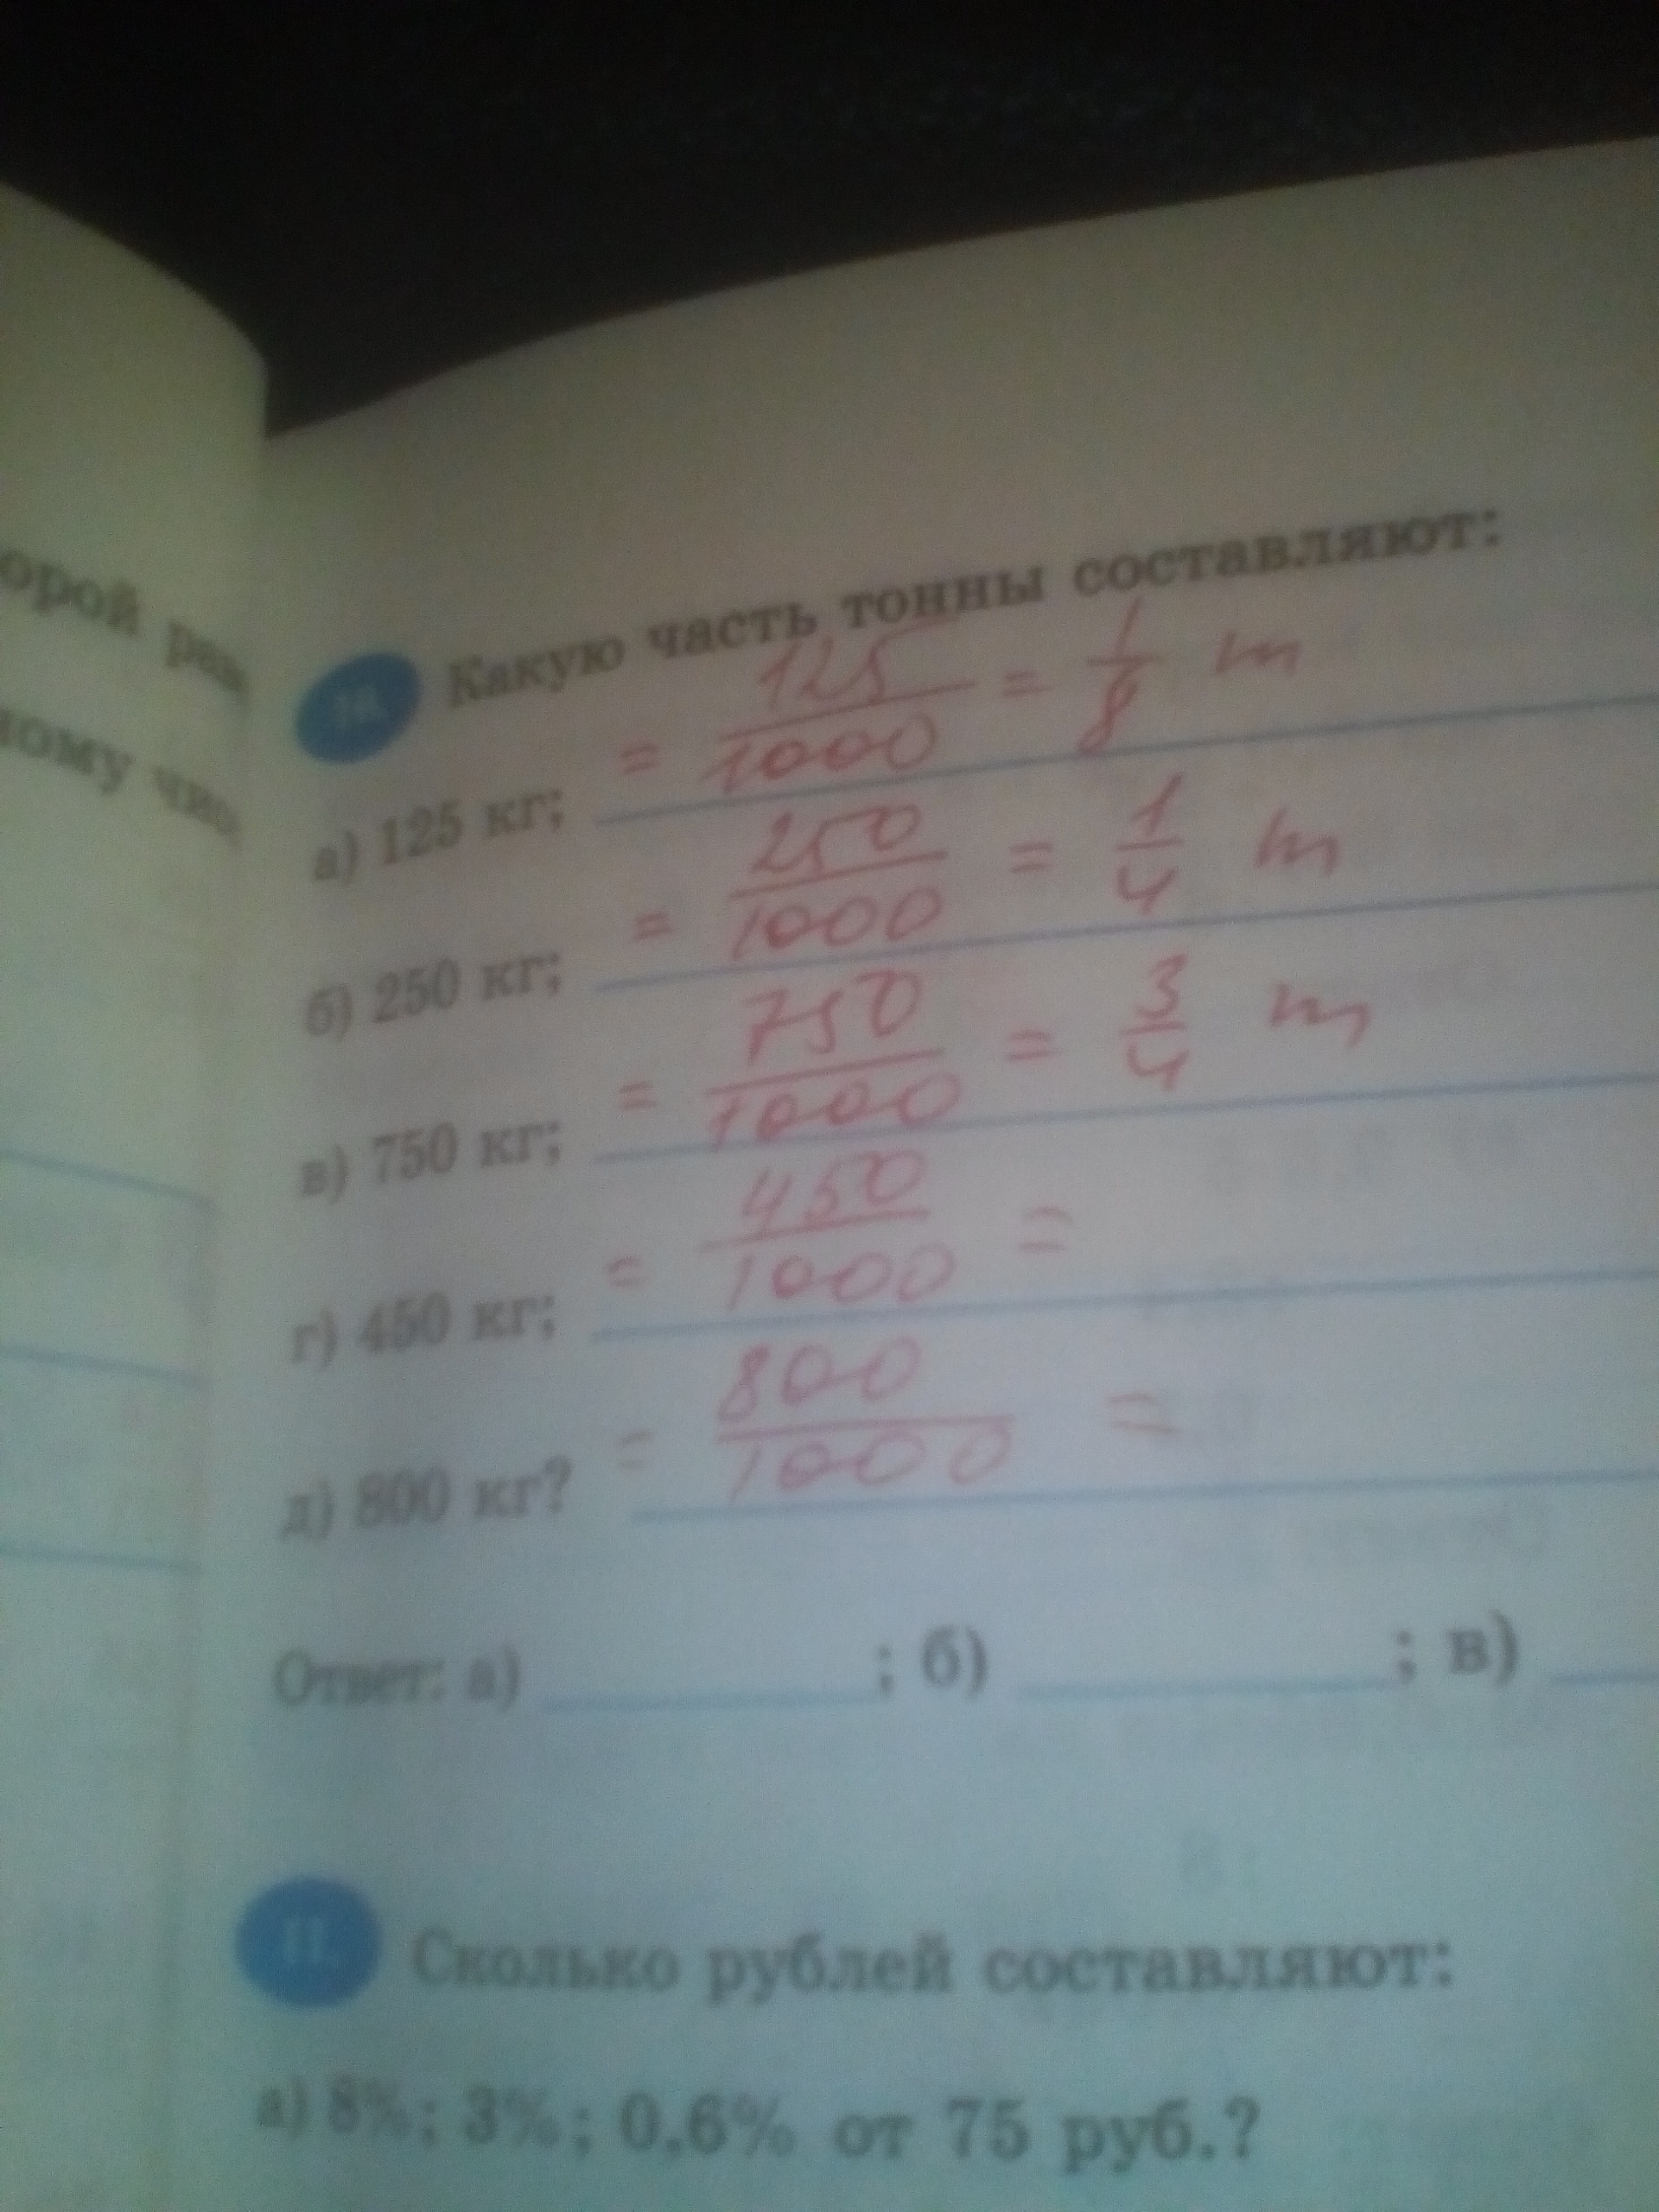 орой
ному
10. Какую часть тонны составляют:
а) 125 кг; = 125/1000 = 1/8 т
б) 250 кг; = 250/1000 = 1/4 т
в) 750 кг; = 750/1000 = 3/4 т
г) 450 кг; = 450/1000 =
д) 800 кг? = 800/1000 =
Ответ: а) ; б) ; в)
11. Сколько рублей составляют:
а) 8%; 3%; 0,6% от 75 руб.?